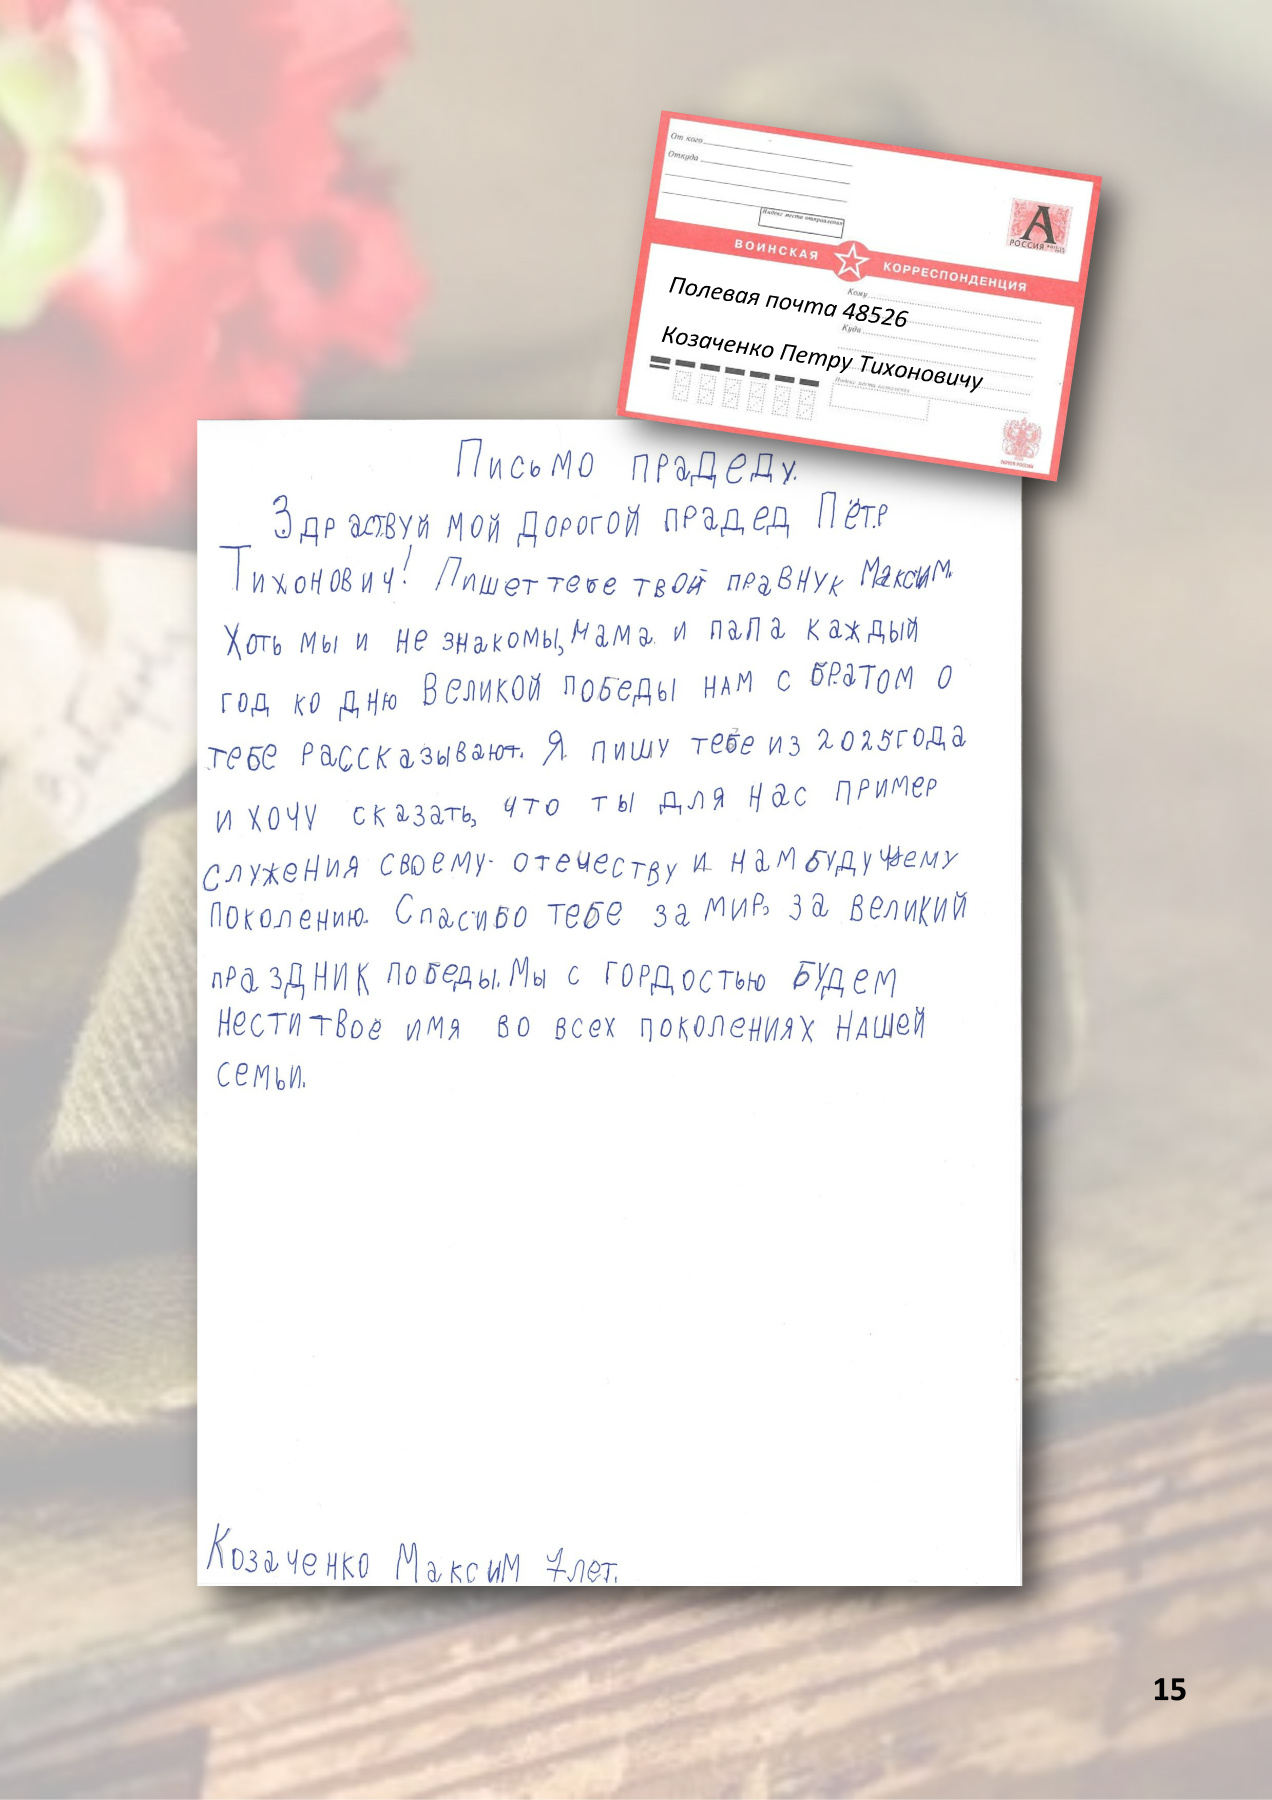 От кого
Откуда
Индекс места отправления
А
РОССИЯ
ВОИНСКАЯ КОРРЕСПОНДЕНЦИЯ
Кому
Полевая почта 48526
Куда
Козаченко Петру Тихоновичу
Индекс места назначения
ПОЧТА РОССИИ
Письмо прадеду.
Здраствуй мой дорогой прадед Пётр
Тихонович! Пишет тебе твой правнук Максим.
Хоть мы и не знакомы, мама и папа каждый
год ко дню Великой победы нам с братом о
тебе рассказывают. Я пишу тебе из 2025 года
и хочу сказать, что ты для нас пример
служения своему отечеству и нам будущему
поколению. Спасибо тебе за мир, за великий
праздник победы. Мы с гордостью будем
нести твоё имя во всех поколениях нашей
семьи.
Козаченко Максим 7 лет.
15